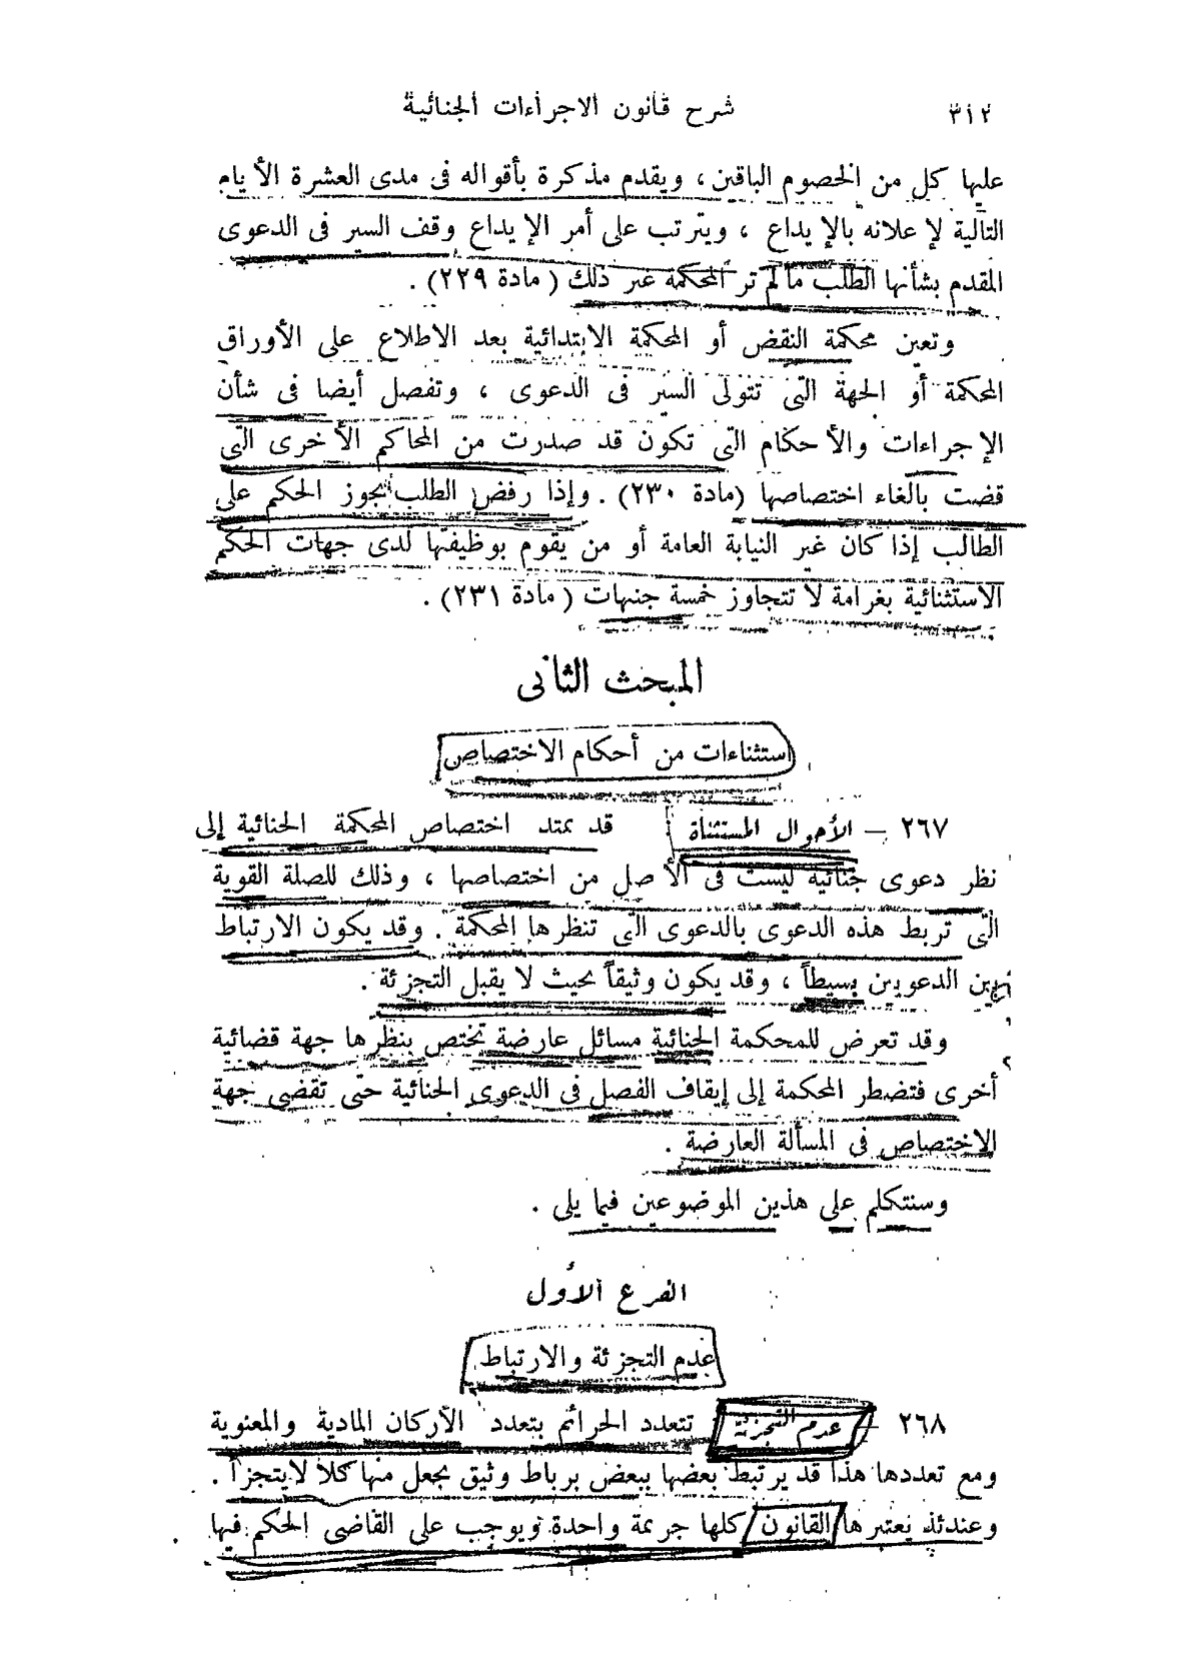 ٣١٢
شرح قانون الاجراءات الجنائية
عليها كل من الخصوم الباقين ، ويقدم مذكرة بأقواله فى مدى العشرة الأيام
التالية لإعلانه بالإيداع ، ويترتب على أمر الإيداع وقف السير فى الدعوى
المقدم بشأنها الطلب ما لم تر المحكمة غير ذلك ( مادة ٢٢٩ ) .
وتعين محكمة النقض أو المحكمة الابتدائية بعد الاطلاع على الأوراق
المحكمة أو الجهة التى تتولى السير فى الدعوى ، وتفصل أيضا فى شأن
الإجراءات والأحكام التى تكون قد صدرت من المحاكم الأخرى التى
قضت بالغاء اختصاصها (مادة ٢٣٠) . وإذا رفض الطلب يجوز الحكم على
الطالب إذا كان غير النيابة العامة أو من يقوم بوظيفتها لدى جهات الحكم
الاستثنائية بغرامة لا تتجاوز خمسة جنيهات ( مادة ٢٣١ ) .
المبحث الثانى
استثناءات من أحكام الاختصاص
٢٦٧ – الأحوال المستثناة قد يمتد اختصاص المحكمة الجنائية إلى
نظر دعوى جنائية ليست فى الأصل من اختصاصها ، وذلك للصلة القوية
التى تربط هذه الدعوى بالدعوى التى تنظرها المحكمة . وقد يكون الارتباط
بين الدعويين بسيطاً ، وقد يكون وثيقاً بحيث لا يقبل التجزئة .
وقد تعرض للمحكمة الجنائية مسائل عارضة تختص بنظرها جهة قضائية
أخرى فتضطر المحكمة إلى إيقاف الفصل فى الدعوى الجنائية حتى تقضى جهة
الاختصاص فى المسألة العارضة .
وسنتكلم على هذين الموضوعين فيما يلى .
الفرع الأول
عدم التجزئة والارتباط
٢٦٨ – عدم التجزئة تتعدد الجرائم بتعدد الأركان المادية والمعنوية
ومع تعددها هذا قد يرتبط بعضها ببعض برباط وثيق يجعل منها كلا لا يتجزأ .
وعندئذ يعتبرها القانون كلها جريمة واحدة ويوجب على القاضى الحكم فيها